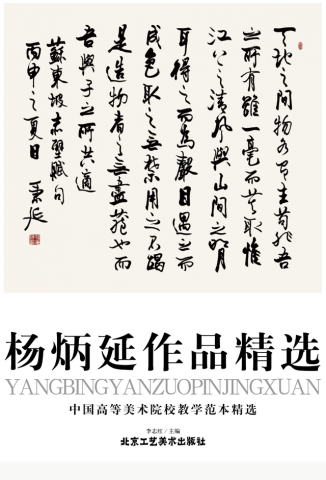 天地之間物各有主苟非吾
之所有雖一毫而莫取惟
江上之清風與山間之明月
耳得之而為聲目遇之而
成色取之无禁用之不竭
是造物者之无盡藏也而
吾與子之所共適
蘇東坡赤壁賦句
丙申之夏日
杨炳延作品精选
YANGBINGYANZUOPINJINGXUAN
中国高等美术院校教学范本精选
李志红/主编
北京工艺美术出版社